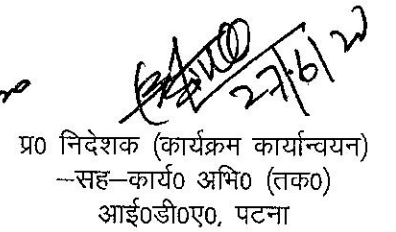 27/6/20
प्र० निदेशक (कार्यक्रम कार्यान्वयन)
–सह–कार्य० अभि० (तक०)
आई०डी०ए०, पटना